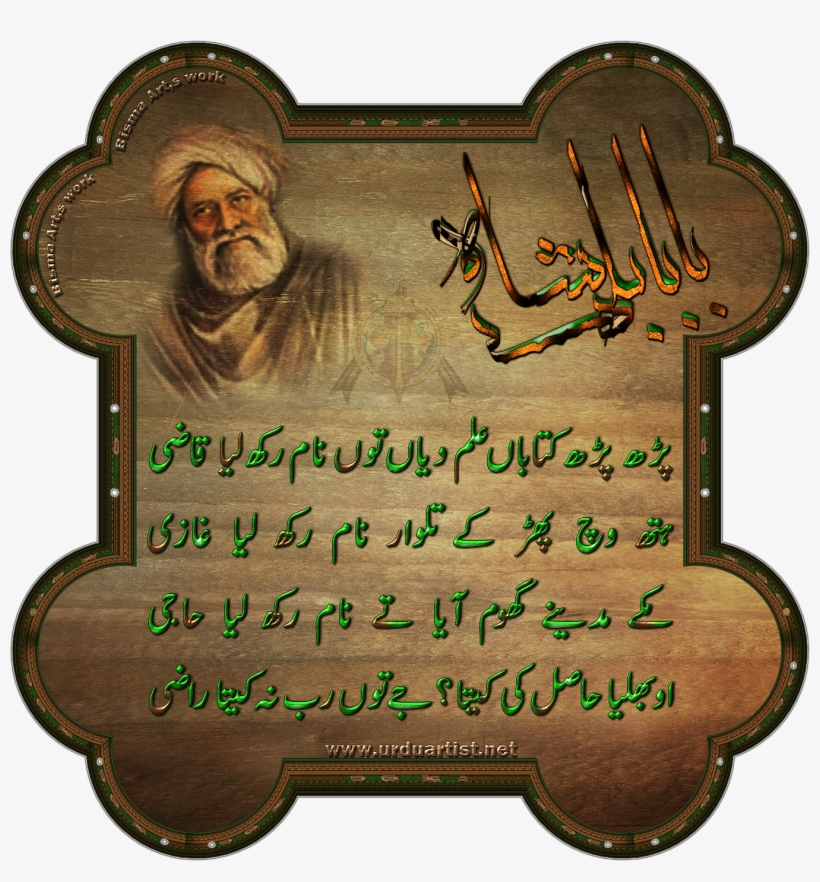 Bisma Art,s work
Bisma Art,s work
بابا بلھے شاہ
پڑھ پڑھ کتاباں علم دیاں توں نام رکھ لیا قاضی
ہتھ وچ پھڑ کے تلوار نام رکھ لیا غازی
مکے مدینے گھوم آیا تے نام رکھ لیا حاجی
او بھلیا حاصل کی کیتا؟ جے توں رب نہ کیتا راضی
www.urduartist.net